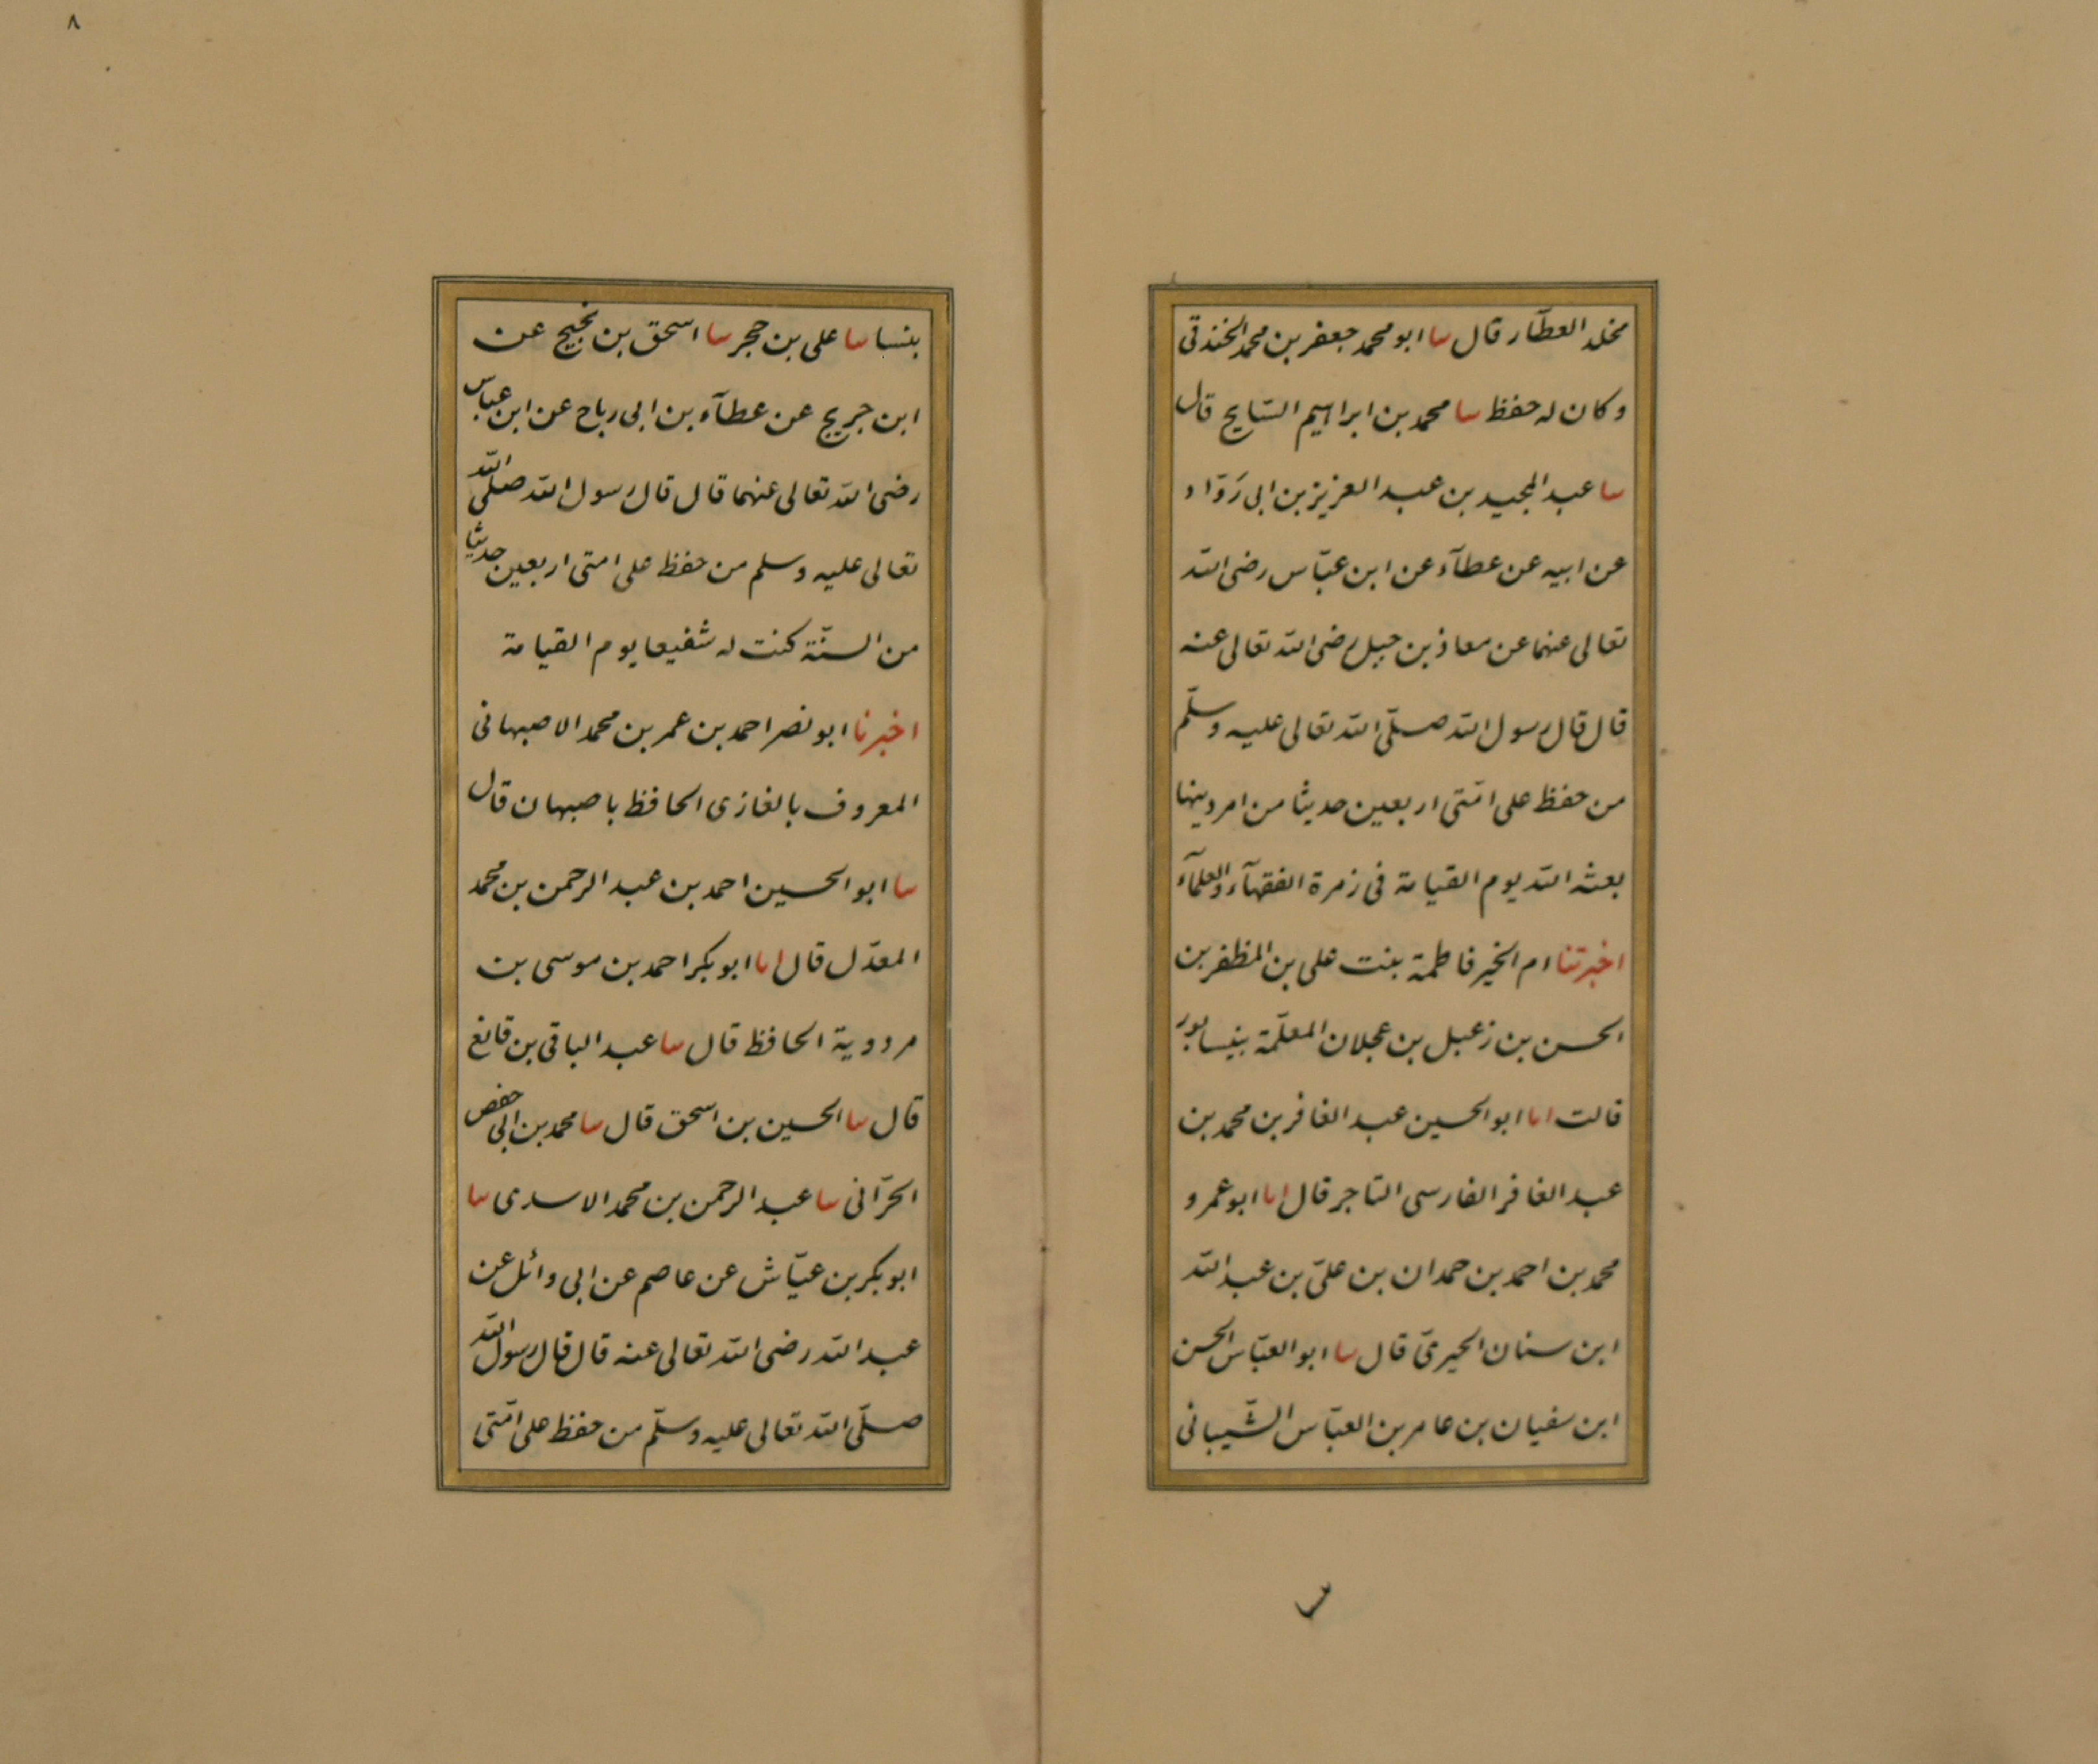 مخلد العطّار قال سا ابو محمد جعفر بن محمد الخندقى
وكان له حفظ سا محمد بن ابراهيم السّايح قال
سا عبد المجيد بن عبد العزيز بن ابى رَوّاد
عن ابيه عن عطآء عن ابن عبّاس رضى الله
تعالى عنهما عن معاذ بن جبل رضى الله تعالى عنه
قال قال رسول الله صلّى الله تعالى عليه وسلّم
من حفظ على امّتى اربعين حديثا من امر دينها
بعثه الله يوم القيامة فى زمرة الفقهآء والعلمآء
اخبرتنا ام الخير فاطمة بنت على بن المظفر بن
الحسن بن زعبل بن عجلان المعلّمة بنيسابور
قالت انا ابو الحسين عبد الغافر بن محمد بن
عبد الغافر الفارسى التاجر قال انا ابو عمرو
محمد بن احمد بن حمدان بن علىّ بن عبد الله
ابن سنان الحيرىّ قال سا ابو العبّاس الحسن
ابن سفيان بن عامر بن العبّاس الشّيبانى
٨
بنسا سا على بن حجر سا اسحق بن نجيح عن
ابن جريج عن عطآء بن ابى رباح عن ابن عباس
رضى الله تعالى عنهما قال قال رسول الله صلى الله
تعالى عليه وسلم من حفظ على امتى اربعين حديثا
من السنّة كنت له شفيعا يوم القيامة
اخبرنا ابو نصر احمد بن عمر بن محمد الاصبهانى
المعروف بالغازى الحافظ باصبهان قال
سا ابو الحسين احمد بن عبد الرحمن بن محمد
المعدّل قال انا ابو بكر احمد بن موسى بن
مردوية الحافظ قال سا عبد الباقى بن قانع
قال سا الحسين بن اسحق قال سا محمد بن ابى حفص
الحرّانى سا عبد الرحمن بن محمد الاسدى سا
ابو بكر بن عيّاش عن عاصم عن ابى وائل عن
عبد الله رضى الله تعالى عنه قال قال رسول الله
صلّى الله تعالى عليه وسلّم من حفظ على امّتى